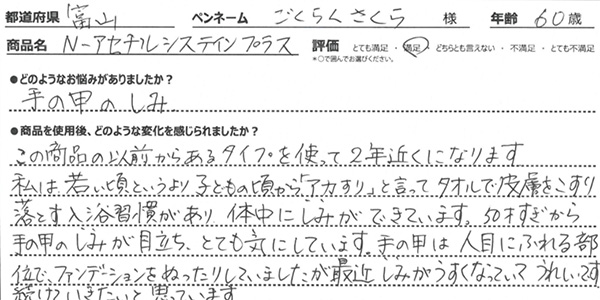 都道府県 富山 ペンネーム ごくらくさくら 様 年齢 60歳
商品名 N-アセチルシステインプラス 評価 とても満足・満足・どちらとも言えない・不満足・とても不満足
*○で囲んでお選びください。
●どのようなお悩みがありましたか?
手の甲のしみ
●商品を使用後、どのような変化を感じられましたか?
この商品の以前からあるタイプを使って2年近くになります
私は、若い頃というより子どもの頃から「アカすり」と言ってタオルで皮膚をこすり
落とす入浴習慣があり 体中にしみができています。50才すぎから
手の甲のしみが目立ち、とても気にしています。手の甲は人目にふれる部
位で、ファンデーションをぬったりしていましたが最近しみがうすくなっていて うれしいです
続けていきたいと思っています